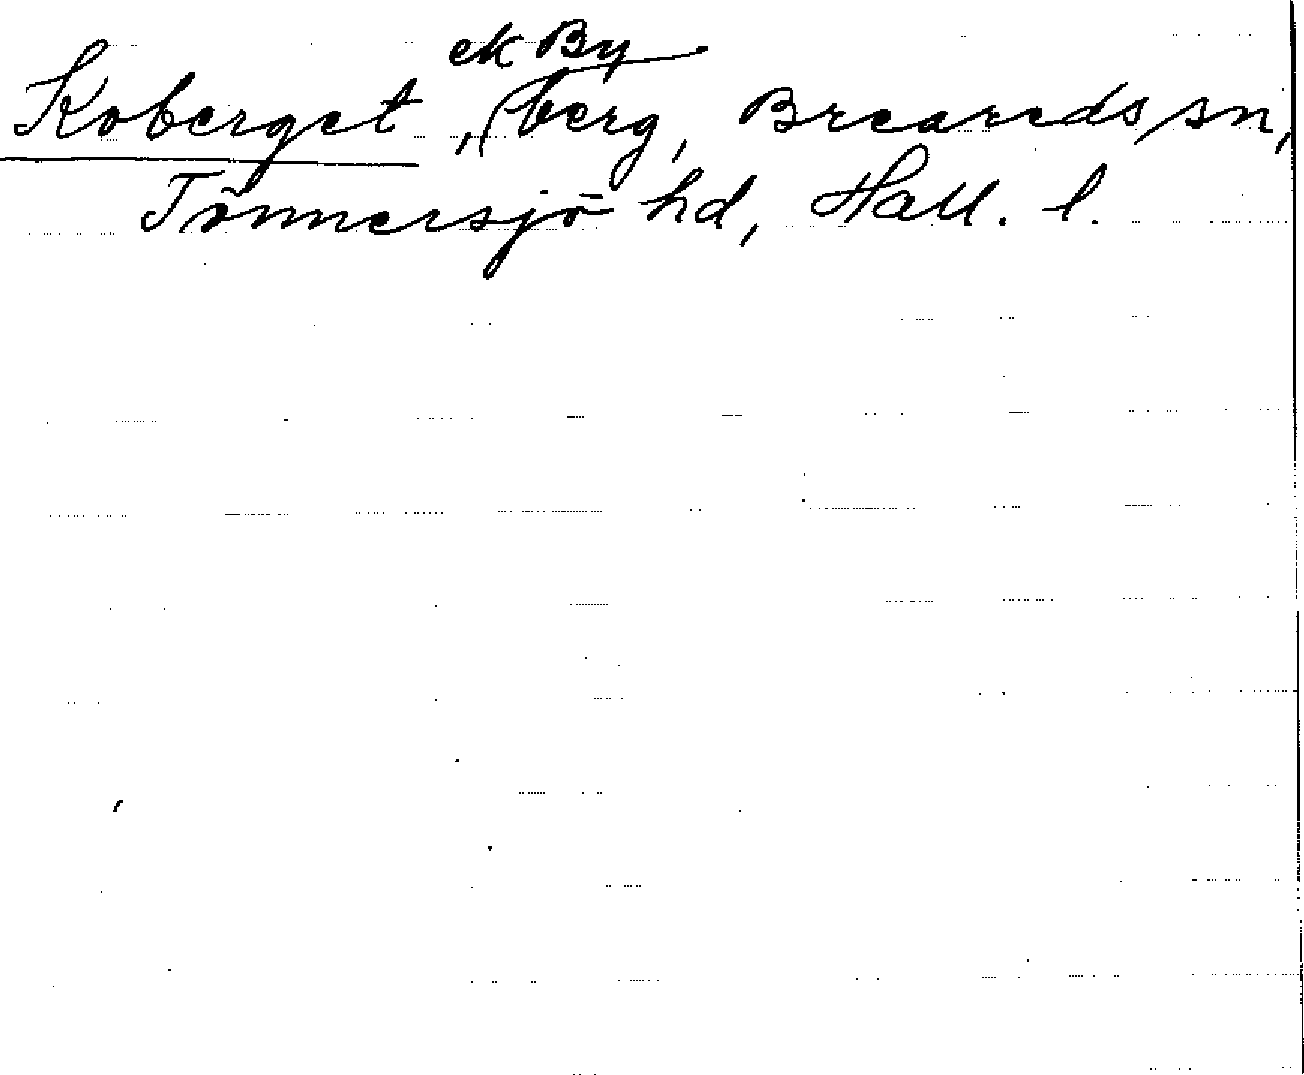 ek By
Koberget, berg, Breareds sn,
Tönnersjö hd, Hall. l.